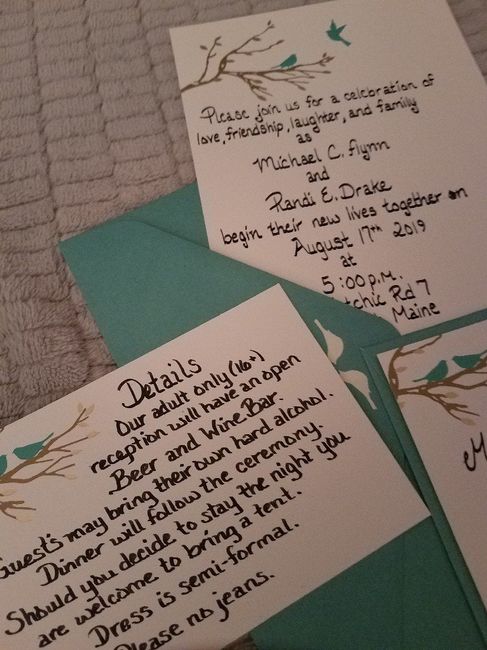 Please join us for a celebration of
love, friendship, laughter, and family
as
Michael C. Flynn
and
Randi E. Drake
begin their new lives together on
August 17th 2019
at
5:00 p.m.
tchic Rd 7
Maine
Details
Our adult only (16+)
reception will have an open
Beer and Wine Bar.
Guest's may bring their own hard alcohol.
Dinner will follow the ceremony.
Should you decide to stay the night you
are welcome to bring a tent.
Dress is semi-formal.
Please no jeans.
M